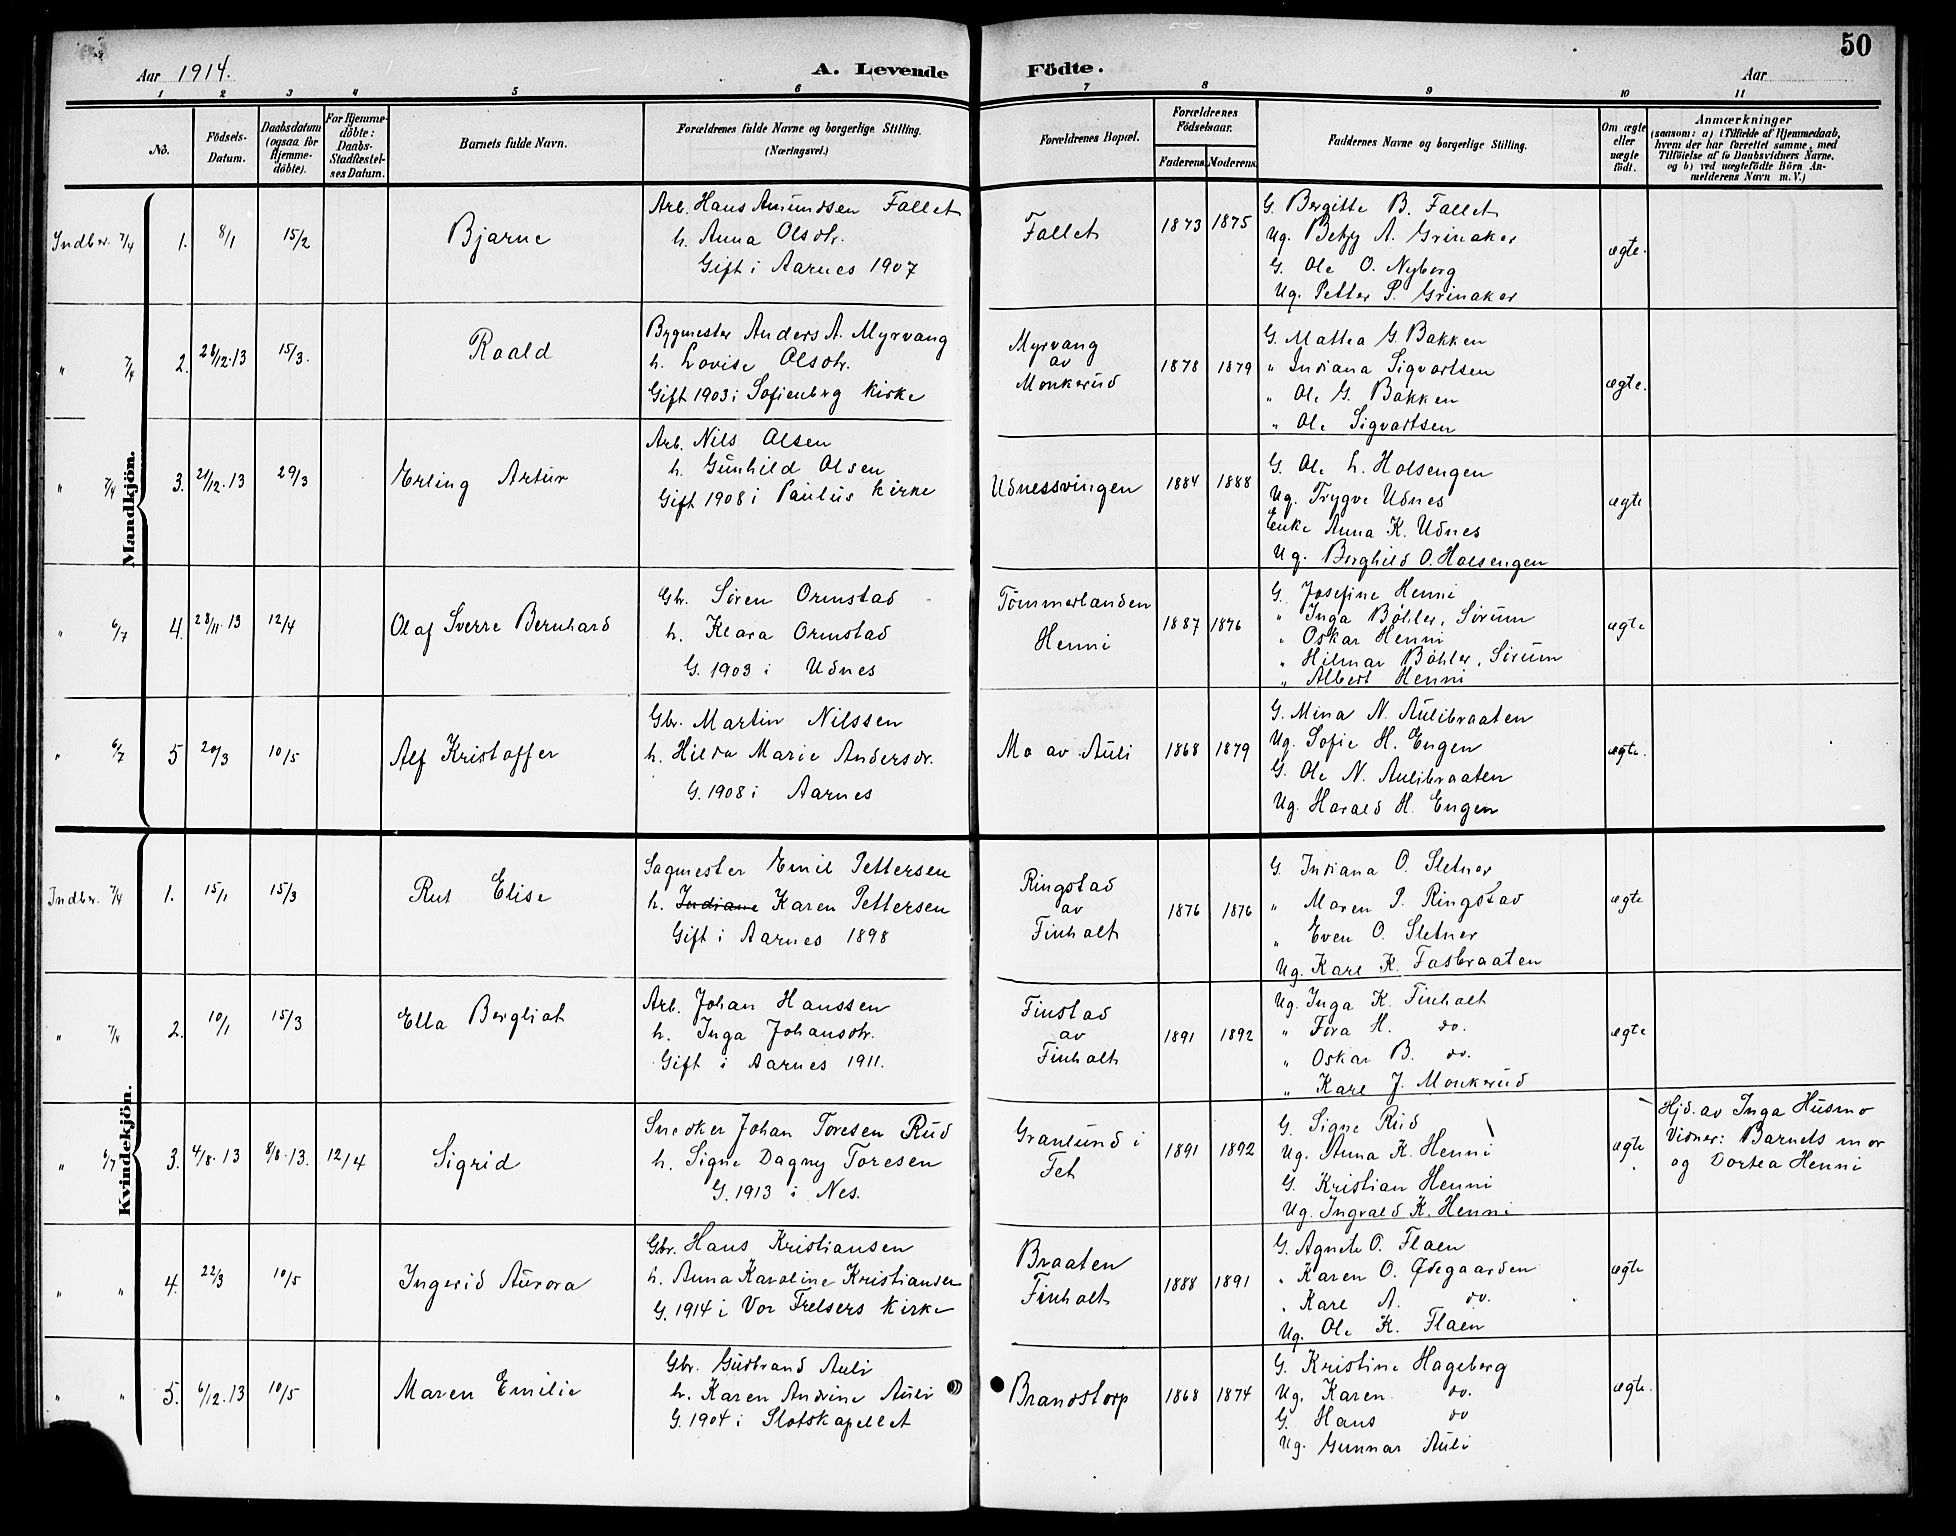 50
Aar 1914.
A. Levende Födte.
Aar
1 2 3 4 5 6 7 8 9 10 11
No.
Födsels-Datum.
Daabsdatum (ogsaa for Hjemme-döbte).
For Hjemme-döbte: Daabs-Stadfæstel-ses Datum.
Barnets fulde Navn.
Forældrenes fulde Navne og borgerlige Stilling. (Næringsvei.)
Forældrenes Bopæl.
Forældrenes Födselsaar.
Faderens. Moderens.
Faddernes Navne og borgerlige Stilling.
Om ægte eller uægte födt.
Anmærkninger
(saasom: a) i Tilfælde af Hjemmedaab, hvem der har forrettet samme, med Tilföielse af to Daabsvidners Navne. og b) ved uægtefödte Börn An-melderens Navn m. V.)
Mandkjön.
Indbr. 7/4 1. 8/1 15/2 Bjarne
Arb. Hans Amundsen Fallet
h. Anna Olsdtr.
Gift i Aarnes 1907
Fallet 1873 1875
G. Bergitte B. Fallet
Ug. Betzy A. Grinaker
G. Ole O. Nyborg
Ug. Petter P. Grinaker
ægte.
" 7/4 2. 28/12.13 15/3. Roald
Bygmester Anders A. Myrvang
h. Lovise Olsdtr.
Gift 1903 i Sofienberg Kirke
Myrvang
av
Monkerud
1878 1879
G. Mattea G. Bakken
" Indiana Sigvartsen
" Ole G. Bakken
" Ole Sigvartsen
ægte.
" 7/4 3. 21/12.13 29/3 Erling Artur
Arb. Nils Olsen
h. Gunhild Olsen
Gift 1908 i Paulus Kirke
Udnessvingen 1884 1888
G. Ole L. Holsengen
Ug. Trygve Udnes
Enke Anna K. Udnes
Ug. Borghild O. Holsengen
ægte
" 6/7 4. 28/11.13 12/4 Olaf Sverre Bernhard
Gbr. Søren Ormstad
h. Klara Ormstad
G. 1903 i Udnes
Tömmerlanden
Henni
1887 1876
G. Josefine Henni
" Inga Böhler, Sörum
" Oskar Henni
" Hilmar Böhler, Sörum
" Albert Henni
ægte
" 6/7 5 20/3 10/5 Alf Kristoffer
Gbr. Martin Nilssen
h. Hilda Marie Andersdr.
G. 1908 i Aarnes
Mo av Auli 1868 1879
G. Mina N. Aulibraaten
Ug. Sofie H. Engen
G. Ole N. Aulibraaten
Ug. Harald H. Engen
ægte.
Kvindekjön.
Indbr. 7/4 1. 15/1 15/3 Rut Elise
Sagmester Emil Pettersen
h. Indiane Karen Pettersen
Gift i Aarnes 1898
Ringstad
av
Finholt
1876 1876
G. Indiana O. Sletner
" Maren P. Ringstad
" Even O. Sletner
Ug. Karl K. Fasbraaten
ægte
" 7/4 2. 10/1 15/3 Ella Bergliot
Arb. Johan Hanssen
h. Inga Johansdtr.
Gift i Aarnes 1911.
Finstad
av
Finholt
1891 1892
Ug. Inga K. Finholt
" Tora H. do.
" Oskar B. do.
" Karl J. Monkerud
ægte
" 6/7 3. 4/8.13 8/8.13. 12/4 Sigrid
Snedker Johan Toresen Rud
h. Signe Dagny Toresen
G. 1913 i Nes.
Granlund i
Fet
1891 1892
G. Signe Rud
Ug. Anna K. Henni
G. Kristian Henni
Ug. Ingvald K. Henni
ægte
Hjd. av Inga Husmo
Vidner: Barnets mor
og Dortea Henni
" " 4. 22/3 10/5 Ingerid Aurora
Gbr. Hans Kristiansen
h. Anna Karoline Kristiansen
G. 1914 i Vor Frelsers Kirke
Braaten
Finholt
1888 1891
G. Agnete O. Flaen
" Karen O. Ødegaarden
" Karl A. do.
Ug. Ole K. Flaen
ægte
" " 5. 6/12.13 10/5 Maren Emilie
Gbr. Gudbrand Auli
h. Karen Andrine Auli
G. 1904 i Slotskapellet
Brandstorp 1868 1874
G. Kristine Hageberg
Ug. Karen do.
G. Hans do
Ug. Gunnar Auli
ægte.